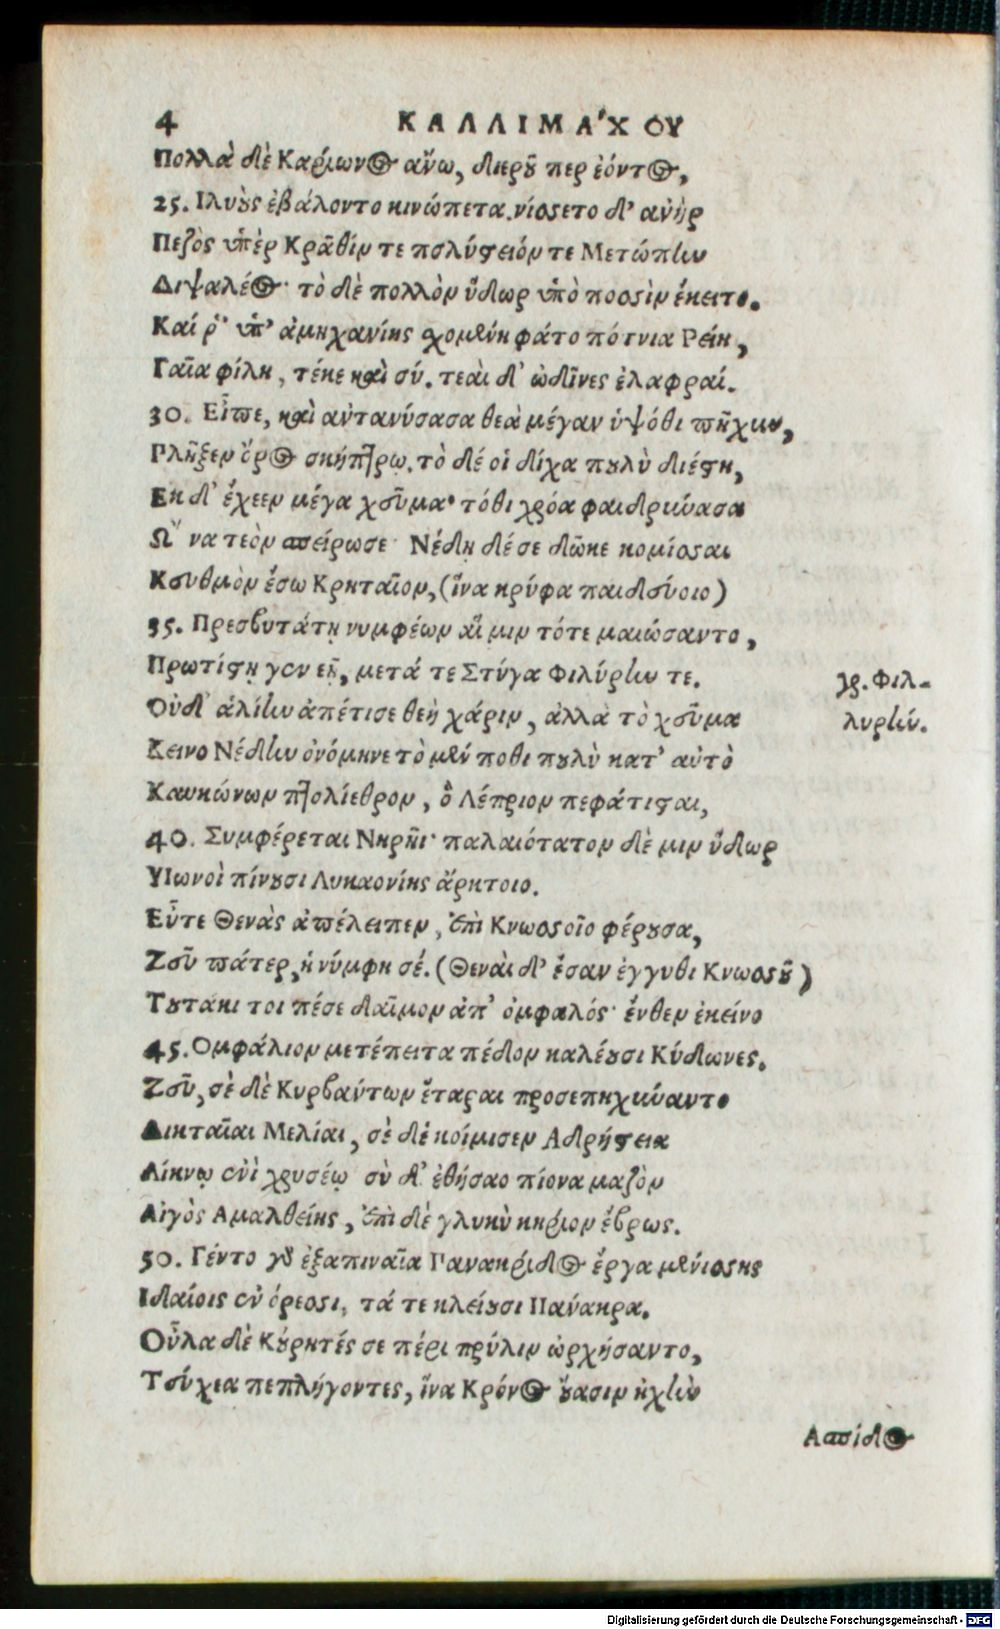 4 ΚΑΛΛΙΜΑ΄ΧΟΥ
Πολλὰ δὲ Καρίωνος ἄνω, διεροῦ περ ἐόντος,
25. Ιλυοὺς ἐβάλοντο κινώπετα. νίσσετο δ' ἀνὴρ
Πεζὸς ὑπὲρ Κρᾶθίν τε πολύστειόν τε Μετώπην
Διψαλέος· τὸ δὲ πολλὸν ὕδωρ ὑπὸ ποσσὶν ἔκειτο.
Καί ῥ' ὑπ' ἀμηχανίης σχομένη φάτο πότνια Ρείη,
Γαῖα φίλη, τέκε καὶ σύ. τεαὶ δ' ὠδῖνες ἐλαφραί.
30. Εἶπε, καὶ ἀντανύσασα θεὰ μέγαν ὑψόθι πῆχυν,
Πλῆξεν ὄρος σκήπτρῳ. τὸ δέ οἱ δίχα πουλὺ διέστη,
Εκ δ' ἔχεεν μέγα χεῦμα· τόθι χρόα φαιδρύνασα
Ω῎ να τεὸν σπείρωσε· Νέδῃ δέ σε δῶκε κομίσσαι
Κευθμὸν ἔσω Κρηταῖον, (ἵνα κρύφα παιδεύοιο)
35. Πρεσβυτάτῃ νυμφέων αἵ μιν τότε μαιώσαντο,
Πρωτίστῃ γενεῇ, μετά τε Στύγα Φιλύρην τε.
γρ. Φιλ-
λυρήν.
Οὐδ' ἁλίην ἀπέτισε θεὴ χάριν, ἀλλὰ τὸ χεῦμα
Κεινο Νέδην ὀνόμηνε τὸ μέν ποθι πουλὺ κατ' αὐτὸ
Καυκώνων πτολίεθρον, ὃ Λέπριον πεφάτισται,
40. Συμφέρεται Νηρῆι· παλαιότατον δὲ μιν ὕδωρ
Υἱωνοὶ πίνουσι Λυκαονίης ἄρκτοιο.
Εὖτε Θενὰς ἀπέλειπεν, ἐπὶ Κνωσσοῖο φέρουσα,
Ζεῦ πάτερ, ἡ νύμφη σέ. (Θεναὶ δ' ἔσαν ἐγγυθι Κνωσσοῦ)
Τουτάκι τοι πέσε δαῖμον ἀπ' ὀμφαλός· ἔνθεν ἐκείνο
45. Ομφάλιον μετέπειτα πέδον καλέουσι Κύδωνες.
Ζεῦ, σὲ δὲ Κυρβαύτων ἕταραι προσεπηχύναντο
Δικταῖαι Μελίαι, σὲ δὲ κοίμισεν Αδρήστεια
Λίκνῳ ἐνὶ χρυσέῳ σὺ δ' ἐθήσαο πίονα μαζὸν
Αἰγὸς Αμαλθείης, ἐπὶ δὲ γλυκὺ κηρίον ἔβρως.
50. Γέντο γὰρ ἐξαπιναῖα Πανακρίδος ἔργα μελίσσης
Ιδαίοις ἐν ὄρεσσι, τά τε κλείουσι Πάνακρα.
Οὖλα δὲ Κούρητές σε πέρι πρύλιν ὠρχήσαντο,
Τεύχεα πεπλήγοντες, ἵνα Κρόνος οὔασιν ἠχὴν
Ασπίδος